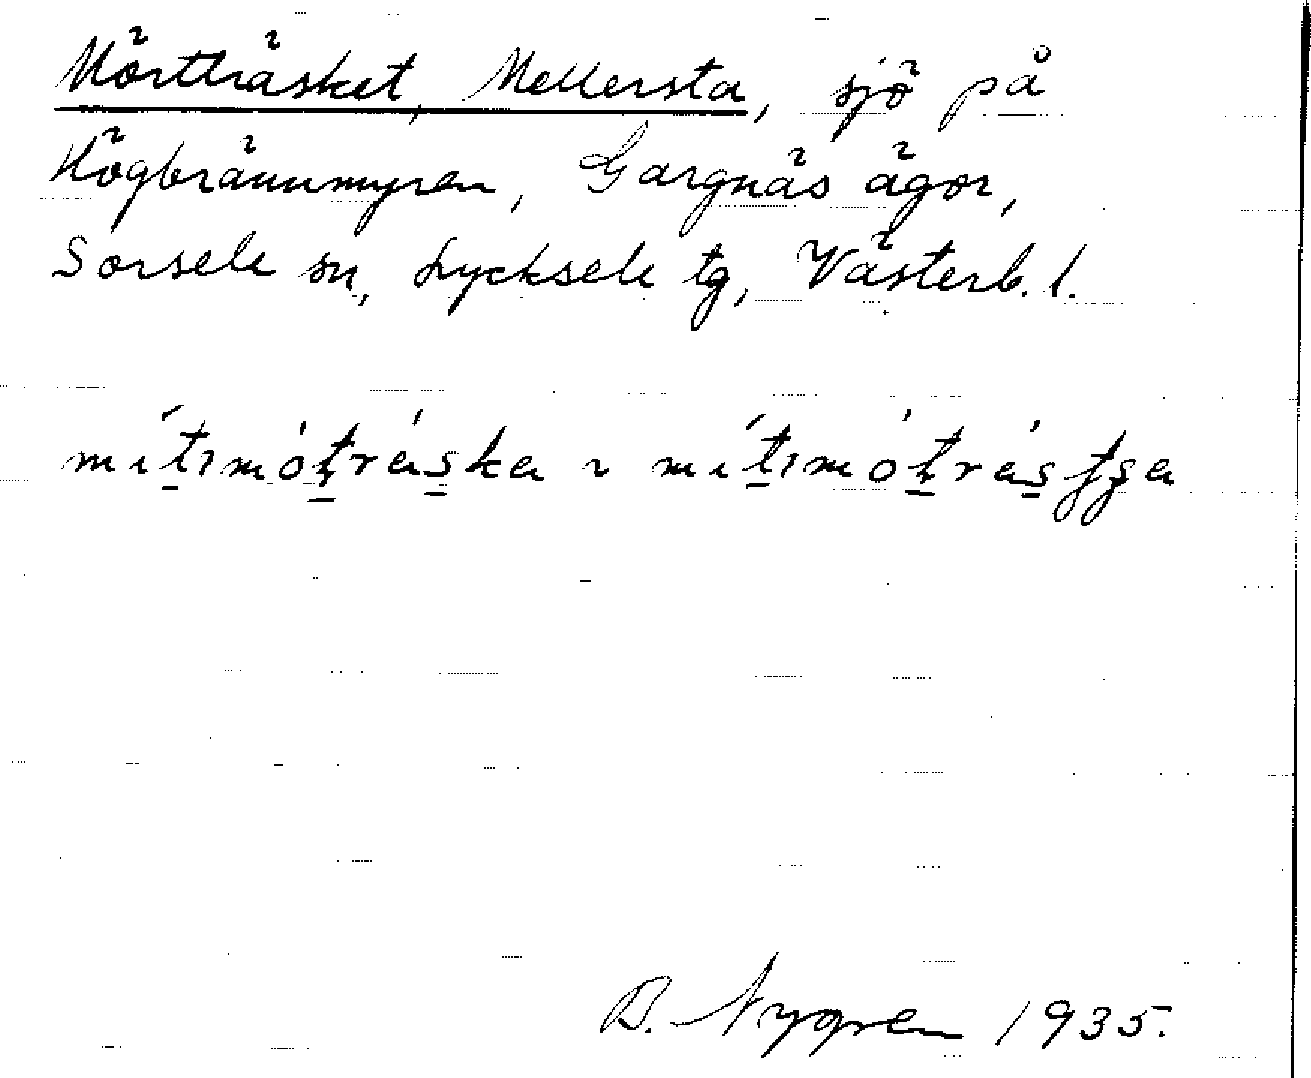 Mörtträsket, Mellersta, sjö på
Högbrännmyren, Gargnäs ägor,
Sorsele sn, Lycksele tg, Västerb. l.
B. Nygren 1935.